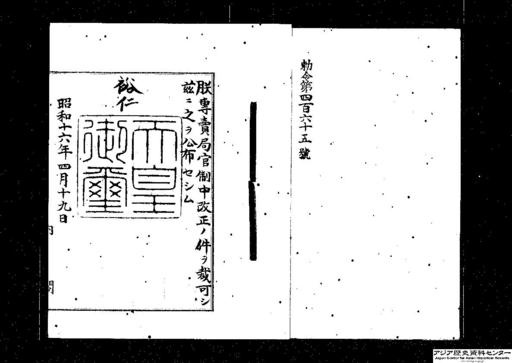 勅令第四百六十五號
朕專賣局官制中改正ノ件ヲ裁可シ
茲ニ之ヲ公布セシム
裕仁
天皇御璽
昭和十六年四月十九日
内閣
アジア歴史資料センター
Japan Center for Asian Historical Records